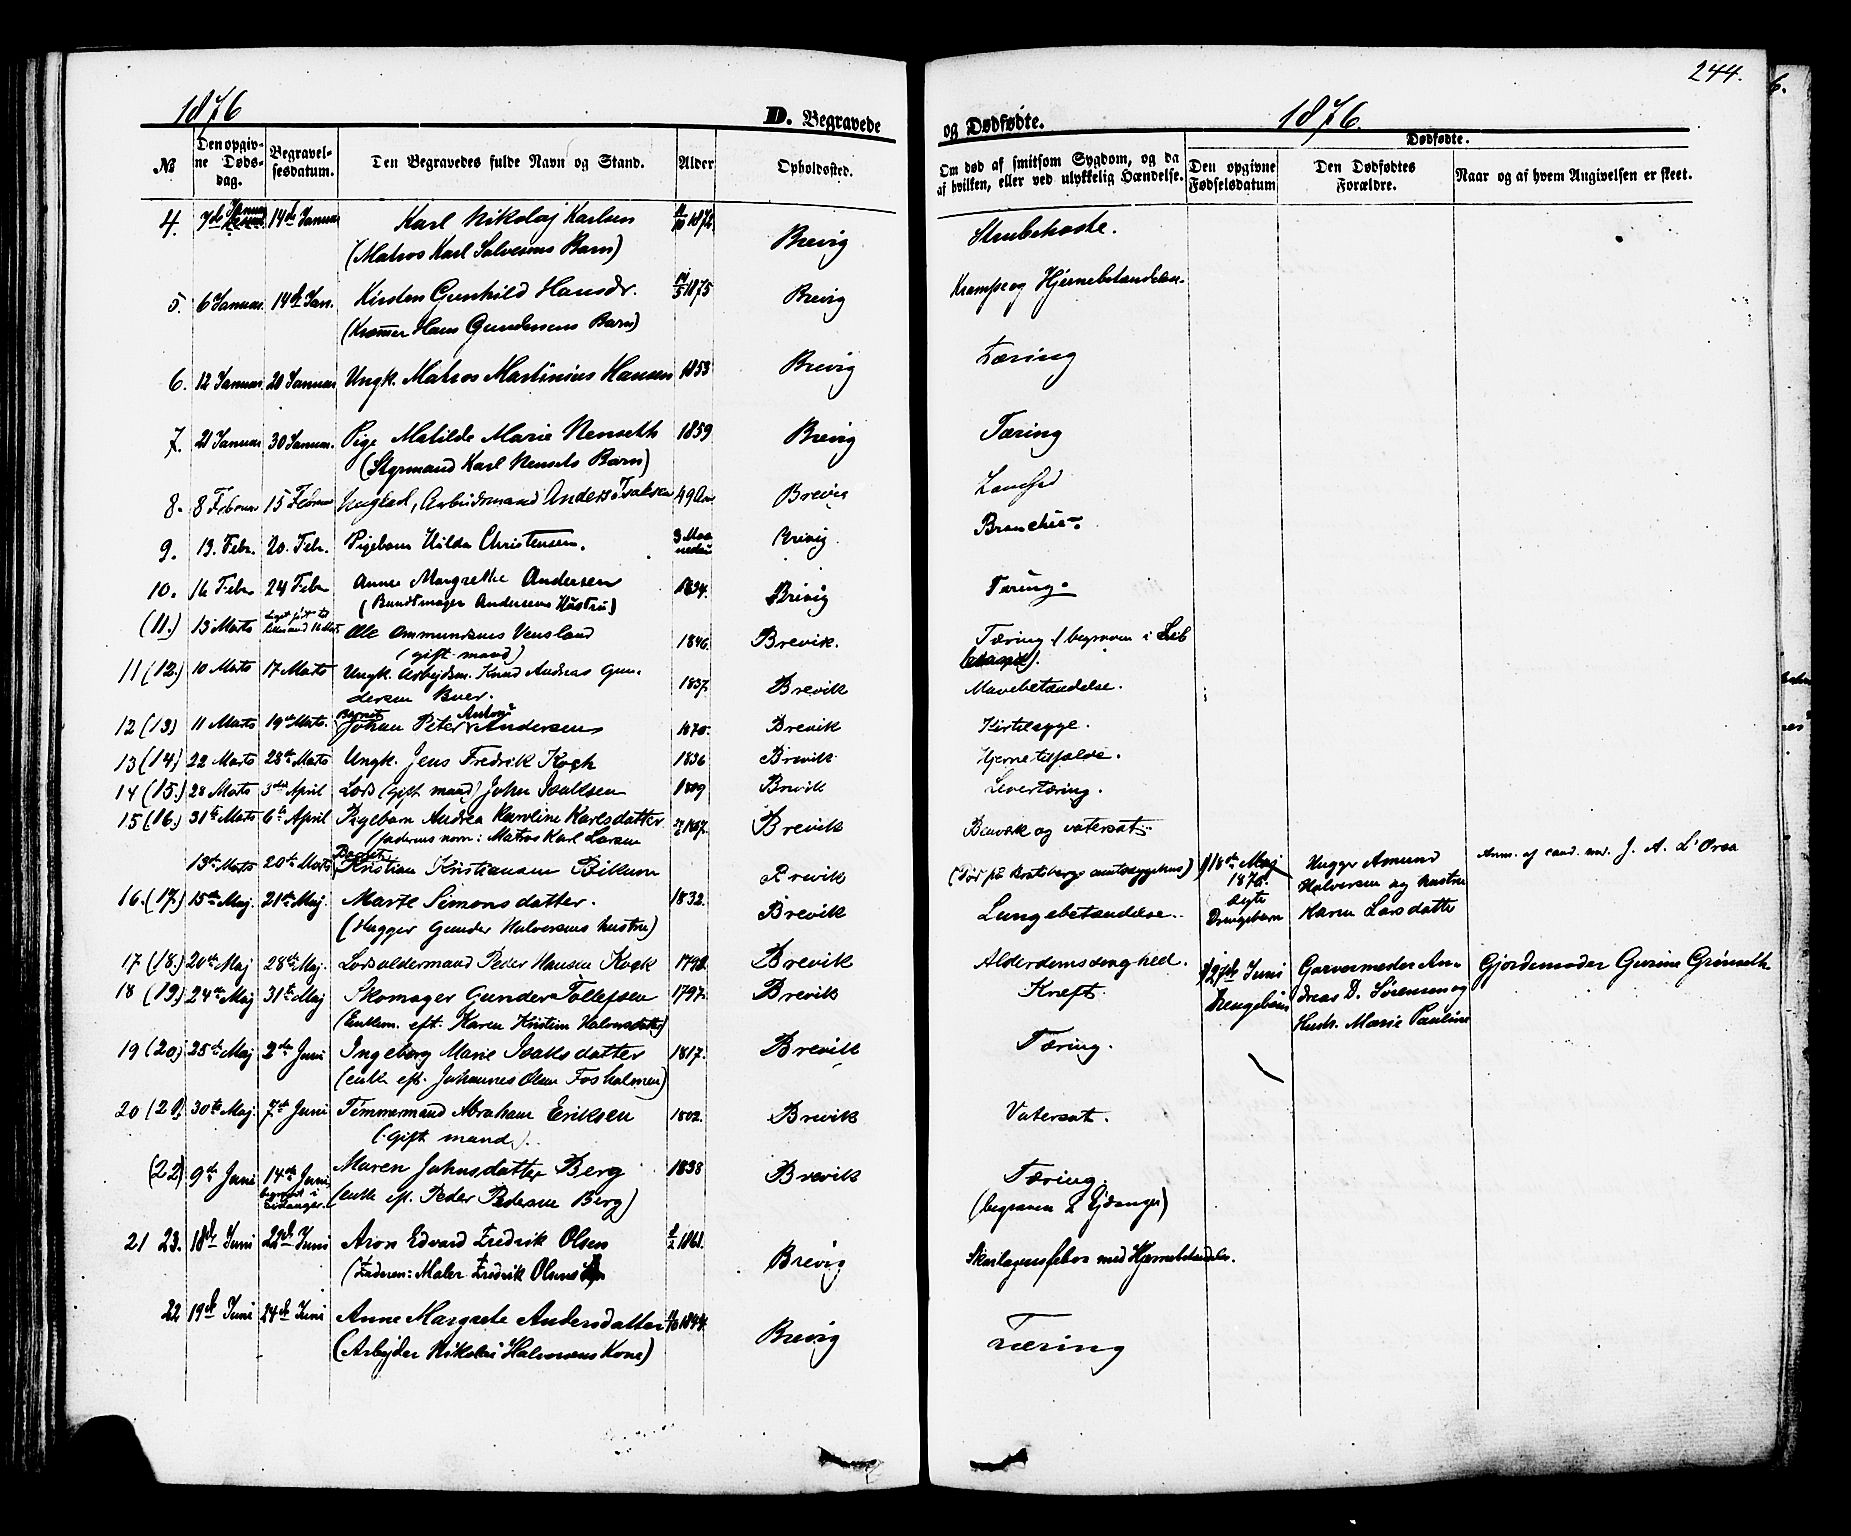 244.
1876
D. Begravede
og Dødfødte.
1876.
№
Den opgivne Dødsdag.
Begravelsesdatum.
Den Begravedes fulde Navn og Stand.
Alder
Opholdssted.
Om død af smitsom Sygdom, og da af hvilken, eller ved ulykkelig Hændelse.
Dødfødte.
Den opgivne Fødselsdatum
Den Dødfødtes Forældre.
Naar og af hvem Angivelsen er skeet.
4. 7de Januar 14de Januar Karl Nikolaj Karlsen Brevig Strubehoste.
(Matros Karl Salvesens Barn)
5. 6 Januar. 14de Jan. Kirsten Gunhild Hansdr. 14/5 1875 Brevig Krampe og Hjernebetændelse.
(Kræmmer Hans Gundersens Barn)
6. 12 Januar 20 Januar Ungk. Matros Martinius Hansen 1853 Brevig Tæring
7. 21 Januar 30 Januar. Pige Matilde Marie Nenseth 1859 Brevig Tæring
(Styrmand Karl Nensets Barn)
8. 8 Februar 15 Februar Arbeidsmand Anders Isaksen 49 Aar Brevig
9. 13. Febr. 20. Febr. Pigebarn Hilda Christensen. 3 Maaneder Brevig
10. 16 Febr 24 Febr Anne Margrethe Andersen 1834. Brevig Tæring.
(Buntmager Andersens Hustru)
(11.) 13 Marts Ole Ommundsens Vensland 1846. Brevik. Tæring (begraven i
(gift mand)
11 (12.) 10 Marts 17 Marts Ungk. Arbejdsm. Knud Andreas Gun- 1837. Brevik Mavebetændelse.
dersen Buer.
12 (13) 11 Marts 19de Marts. Barnet Johan Peter Anton Andersen 1870. Brevik Kirtelsyge.
13 (14) 22 Marts 28de Marts Ungk. Jens Fredrik Koch 1836 Brevik Hjernetilfælde.
14 (15.) 28 Marts 3die April Lods (gift mand) John Isaksen 1809 Brevik Levertæring.
15 (16.) 31te Marts 6te April Pigebarn Andrea Karoline Karlsdatter 1867. Brevik Benværk og vatersot.
(faderens navn: Matros Karl Larsen
13de Marts 20de Marts Barnet Kristian Kristiansen Brevik (Død på Bratsbergs amtssygehus)
16. (17.) 15de Maj. 21de Maj. Marte Simonsdatter. 1832. Brevik Lungebetændelse.
(Hugger Gunder Halvorsens hustru)
18de Maj 1876. ægte Drengebarn
Hugger Amund Halvorsen og hustru Karen Larsdatter
Anm. af cand. med. J. A. L'Orsa
17 (18.) 20de Maj 28de Maj. Lodsoldermand Peder Hansen Kock 1798. Brevik Alderdomssvaghed.
27de Juni Drengebarn
Garvermester Andreas D. Sørensen og Hustr. Marie Pauline
Gjordemoder Gurine Grønseth
18 (19.) 24de Maj 31te Maj Skomager Gunder Tollefsen 1797. Brevik Kræft.
(Enkem. eft. Karen Kristine Halvorsdatter)
19 (20) 25de Maj 2den Juni Ingeborg Marie Isaksdatter 1817. Brevik Tæring.
(enke eft. Johannes Olsen Fosholmen)
20 (21) 30te Maj. 7de Juni Tømmermand Abraham Eriksen 1802. Brevik Vatersot.
(gift mand).
(22) 9de Juni 14de Juni begravet i Eidanger. Maren Johnsdatter Berg 1838 Brevik Tæring.
(enke eft. Peder Pedersen Berg) (begraven i Ejdanger)
21 23. 18de Juni 22de Juni Aron Edvard Fredrik Olsen 1868. Brevig Skarlagensfeber med Hjernebetændelse.
(Faderen: Maler Fredrik Olsen
22 19de Juni 24de Juni Anne Margrete Andersdatter 1844. Brevig Tæring
(Arbejder Nikolai Halvorsens Kone)